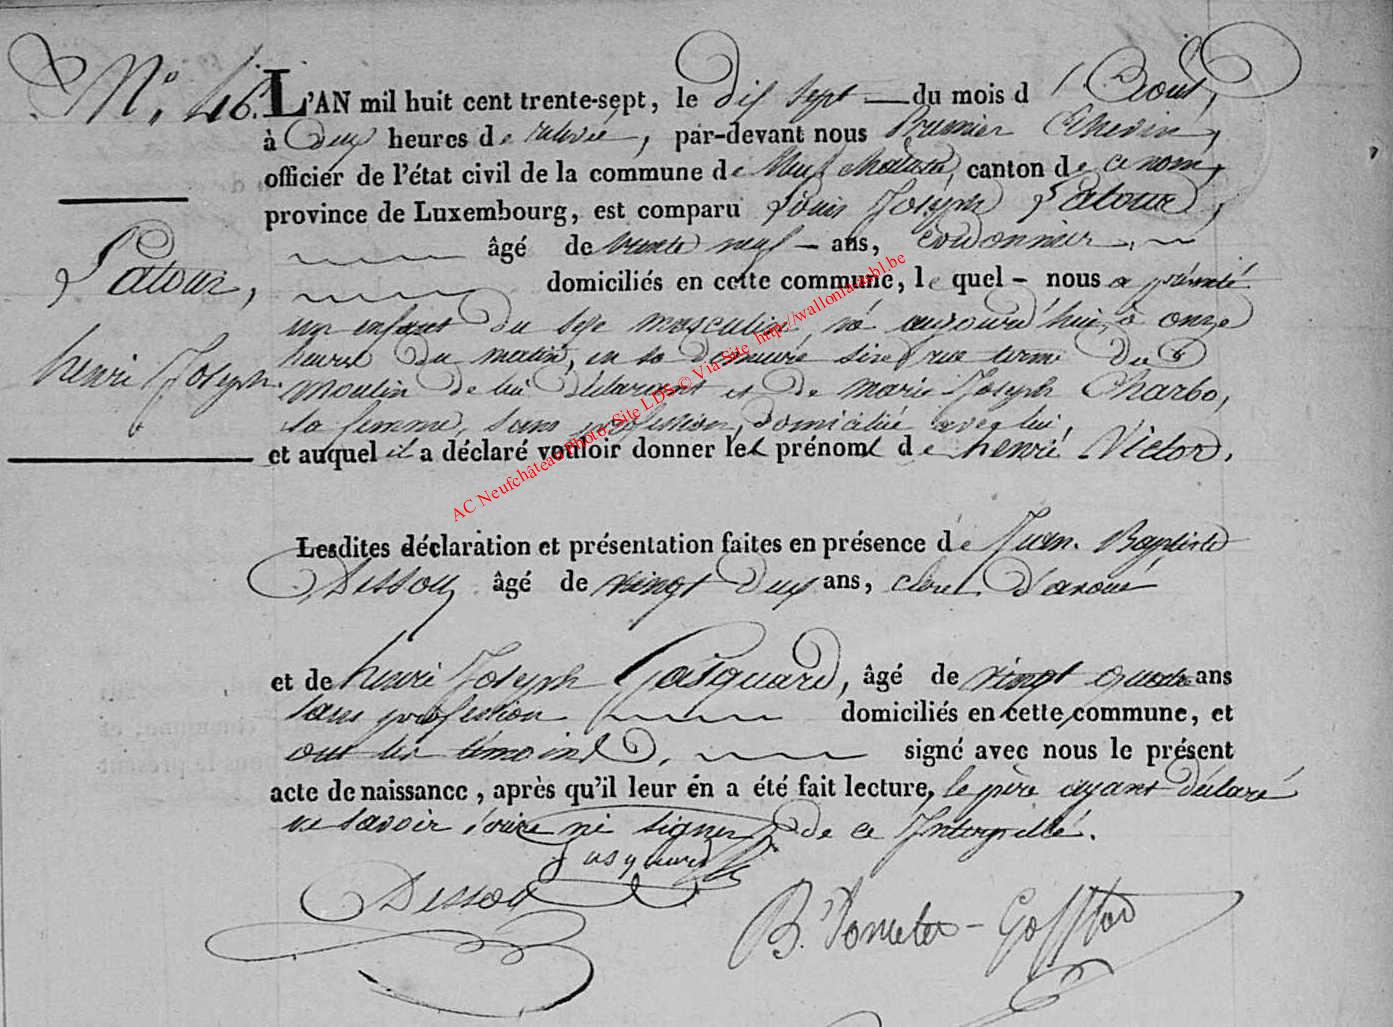 N° 46. L'AN mil huit cent trente-sept, le dix sept du mois d'Août,
à deux heures de relevée, par-devant nous Premier Echevin,
officier de l'état civil de la commune de Neufchateau, canton de ce nom,
province de Luxembourg, est comparu Louis Joseph Latour,
âgé de trente neuf ans, cordonnier,
Latour,
domiciliés en cette commune, lequel nous a présenté
un enfant du sexe masculin né aujourd'hui, à onze
heures du matin, en sa demeure sise rue du
henri Joseph.
moulin de lui déclarant et de marie Joseph Charbo,
sa femme, sans profession, domiciliée avec lui,
et auquel il a déclaré vouloir donner les prénoms de henri Victor.
Lesdites déclaration et présentation faites en présence de Jean Baptiste
Dessoy âgé de vingt deux ans, clerc d'avoué
et de henri Joseph Gasquard, âgé de vingt quatre ans
sans profession domiciliés en cette commune, et
ont les témoins signé avec nous le présent
acte de naissance, après qu'il leur en a été fait lecture, le père ayant déclaré
ne savoir écrire ni signer de ce Interpellé.
Gasquard
Dessoy
AC Neufchâteau Photo: Site LDS © Via Site http://wallonia.asbl.be